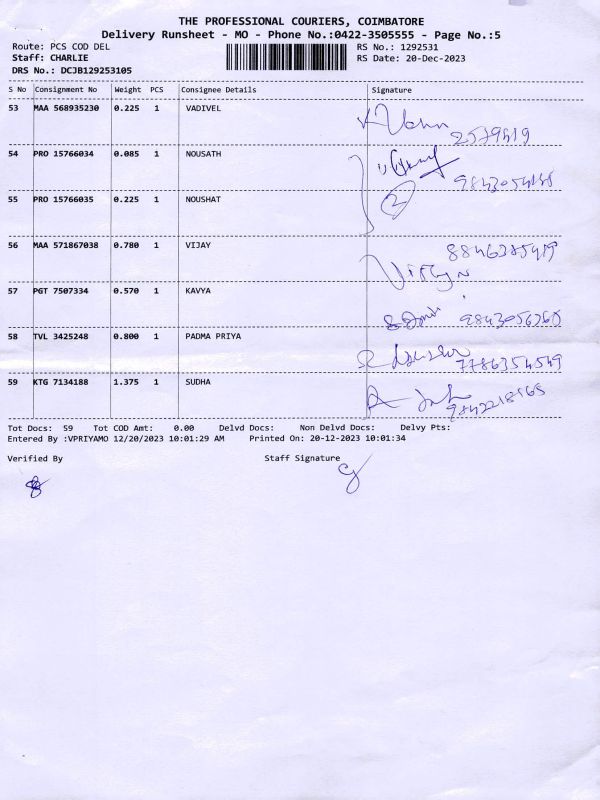 THE PROFESSIONAL COURIERS, COIMBATORE
Delivery Runsheet - MO - Phone No.:0422-3505555 - Page No.:5
Route: PCS COD DEL RS No.: 1292531
Staff: CHARLIE RS Date: 20-Dec-2023
DRS No.: DCJB129253105
S No Consignment No Weight PCS Consignee Details Signature
53 MAA 568935230 0.225 1 VADIVEL
54 PRO 15766034 0.085 1 NOUSATH
55 PRO 15766035 0.225 1 NOUSHAT
2
56 MAA 571867038 0.780 1 VIJAY
57 PGT 7507334 0.570 1 KAVYA
58 TVL 3425248 0.800 1 PADMA PRIYA
7786354549
59 KTG 7134188 1.375 1 SUDHA
Tot Docs: 59 Tot COD Amt: 0.00 Delvd Docs: Non Delvd Docs: Delvy Pts:
Entered By :VPRIYAMO 12/20/2023 10:01:29 AM Printed On: 20-12-2023 10:01:34
Verified By Staff Signature